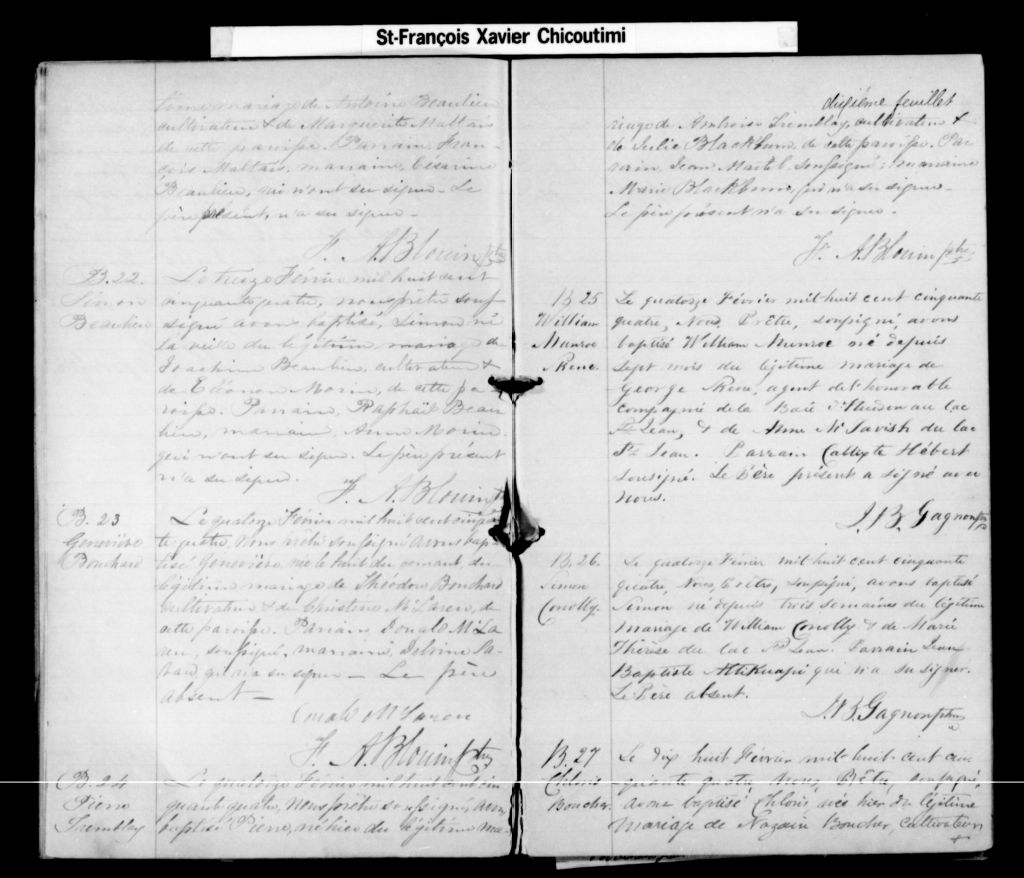 St-François Xavier Chicoutimi
time mariage de Antoine Beaulieu
cultivateur & de Marguerite Maltais
de cette paroisse. Parrain Fran-
çois Maltais, marraine, Césarine
Beaulieu, qui n'ont su signer. Le
père présent, n'a su signer -
F. A. Blouin ptre
B. 22.
Simon
Beaulieu
Le treize Février mil huit cent
cinquante quatre, nous prêtre sous
signé avons baptisé, Simon né
la veille du légitime mariage de
Joachim Beaulieu, cultivateur &
de Eléonore Morin, de cette pa
roisse. Parrain, Raphaël Beau
lieu, marraine, Anne Morin
qui n'ont su signer. Le père présent
n'a su signer.
F. A. Blouin
B. 23
Geneviève
Bouchard
Le quatorze Février mil huit cent cinquan
te quatre, Nous prêtre soussigné avons bap
tisé Geneviève, née le huit du courant, du
légitime mariage de Théodore Bouchard
cultivateur & de Christine McLaren, de
cette paroisse. Parrain, Donald McLa
ren, soussigné, marraine,
qui n'a su signer - Le père
absent -
McLaren
F. A. Blouin ptre
B. 24
Pierre
Tremblay
Le quatorze Février mil huit cent cin
quante quatre, Nous prêtre soussigné, avons
baptisé Pierre, né hier du légitime ma-
dixième feuillet
riage de Ambroise Tremblay, cultivateur &
de Julie Blackburn, de cette paroisse. Par
rain, Jean Martel soussigné; marraine
Marie Blackburn, qui n'a su signer -
Le père présent n'a su signer -
F. A. Blouin ptre
B. 25
William
Munroe
Le quatorze Février mil-huit cent cinquante
quatre, Nous, Prêtre, soussigné, avons
baptisé William Munroe né depuis
sept mois du légitime mariage de
George agent de l'honorable
compagnie de la Baie d'Hudson au lac
St Jean, & de Anne McTavish du lac
St Jean. Parrain Calixte Hébert
sousigné. Le Père présent a signé avec
nous.
J. B. Gagnon ptre
B. 26.
Simon
Conolly.
Le quatorze Février mil huit cent cinquante
quatre, Nous, Prêtre, soussigné, avons baptisé
Simon né depuis trois semaines du légitime
mariage de William Conolly & de Marie
Thérèse du lac St Jean. Parrain Jean
Baptiste qui n'a su signer.
Le Père absent.
J. B. Gagnon ptre
B. 27
Chloris
Boucher.
Le dix huit Février mil-huit-cent cin
quante quatre, Nous, Prêtre, soussigné,
avons baptisé Chloris née hier du légitime
mariage de Nazaire Boucher, cultivateur
&